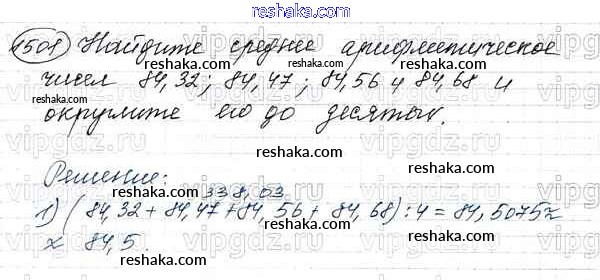 reshaka.com
1508 Найдите среднее арифметическое
чисел 84,32; 84,47; 84,56 и 84,68 и
reshaka.com reshaka.com reshaka.com
округлите его до десятых.
reshaka.com
Решение:
reshaka.com
338,03
1) (84,32 + 84,47 + 84,56 + 84,68) : 4 = 84,5075 ≈
reshaka.com reshaka.com
≈ 84,5.
reshaka.com